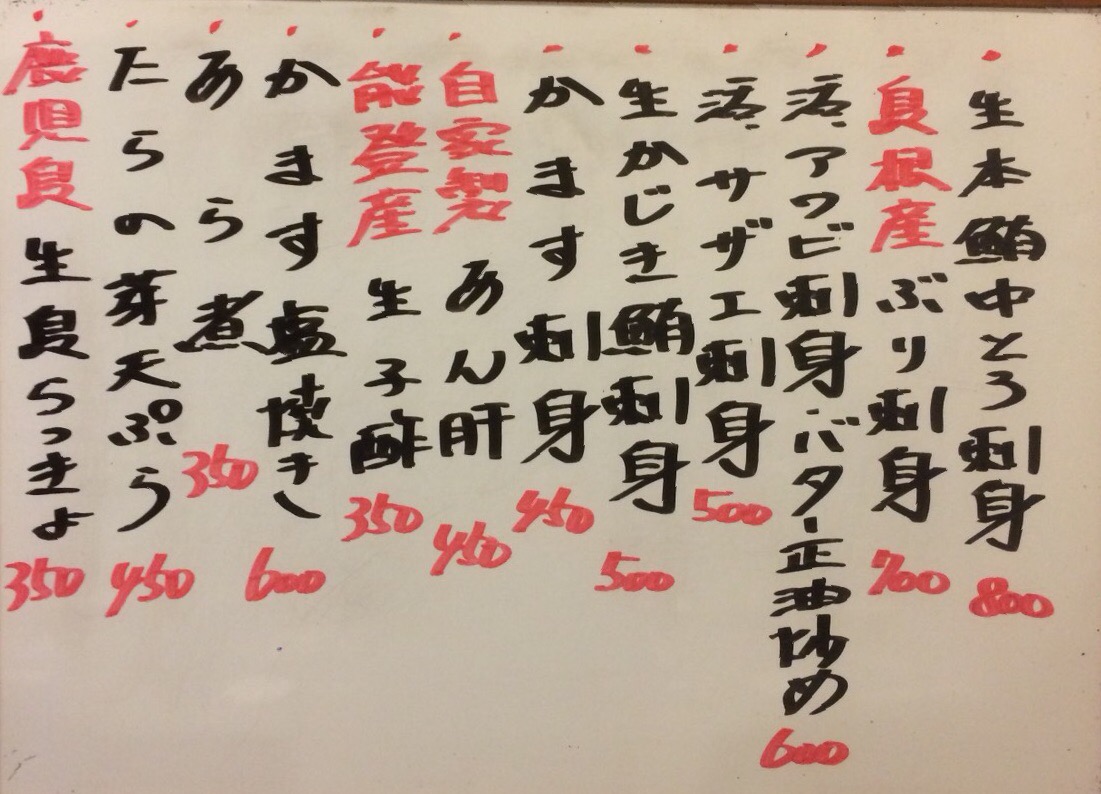 ・生本鮪中とろ刺身 800
・島根産ぶり刺身 700
・活アワビ刺身・バター正油炒め 600
・活サザエ刺身 500
・生かじき鮪刺身 500
・かます刺身 450
・自家製あん肝 450
・能登産生子酢 350
・かます塩焼き 600
・あら煮 350
・たらの芽天ぷら 450
・鹿児島生島らっきょ 350